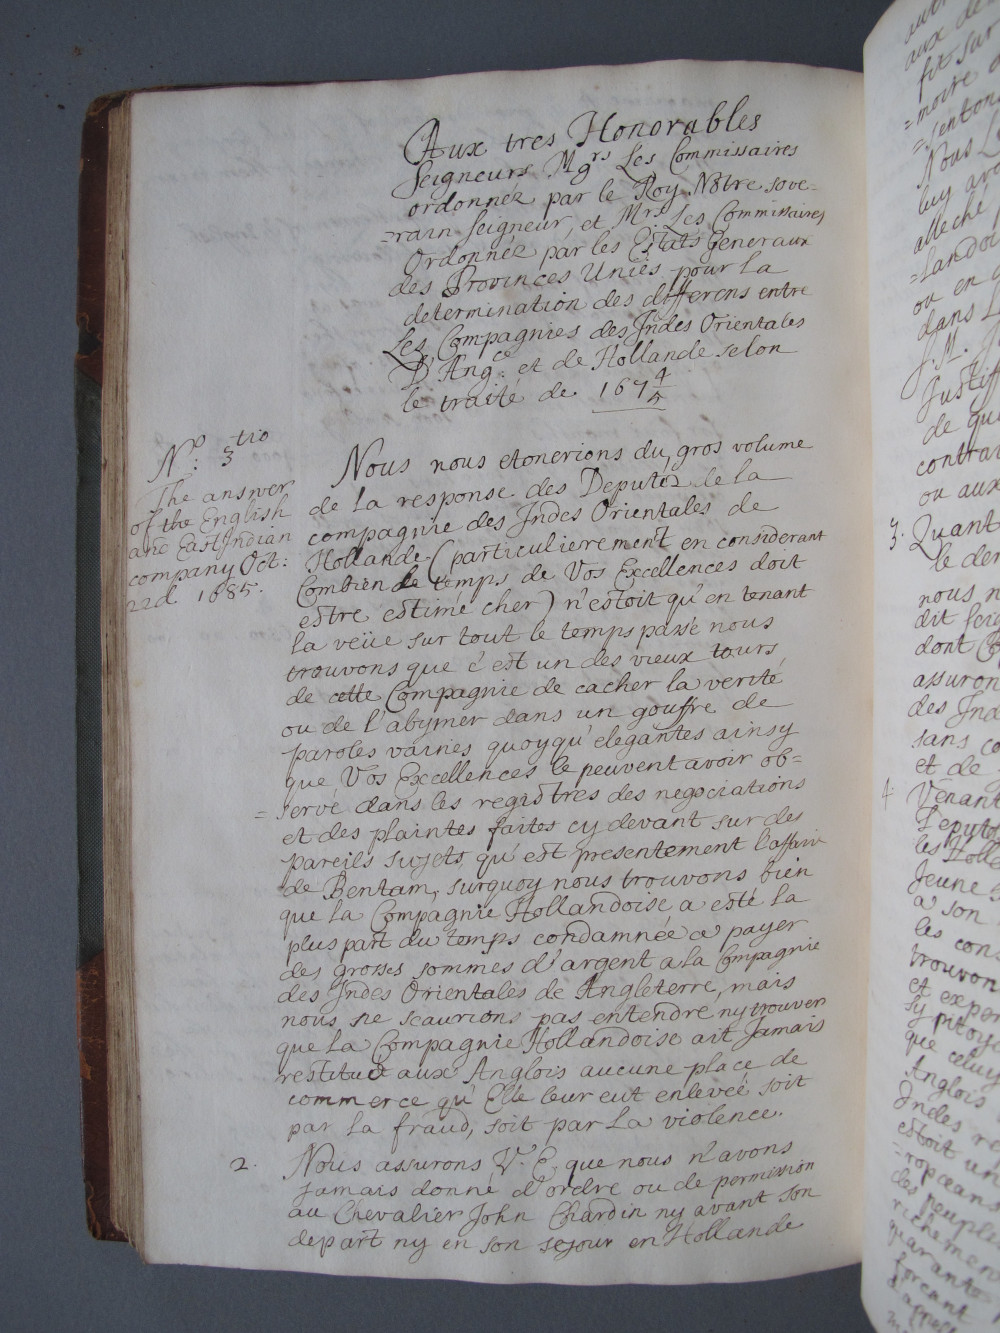 Aux tres Honorables
Seigneurs Mgrs Les Commissaires
ordonnéz par le Roy Nôtre sove-
=rain Seigneur, et Mrs Les Commissaires
Ordonnéz par les Estats Generaux
des Provinces Unies pour la
determination des differens entre
Les Compagnies des Indes Orientales
D'Angce et de Hollande selon
le traité de 167 4/4
No: 3tio
The answer
of the English
and East Indian
company Oct:
22d 1685.
Nous nous etonerions du gros volume
de la response des Deputéz de la
compagnie des Indes Orientales de
Hollande (particulierement en considerant
Combien le temps de Vos Excellences doit
estre estimé cher) n'estoit qu'en tenant
la veüe sur tout le temps passé nous
trouvons que c'est un des vieux tours
de cette Compagnie de cacher la verité
ou de l'abymer dans un gouffre de
paroles vaines quoyqu'elegantes ainsy
que Vos Excellences le peuvent avoir ob=
=servé dans les registres des negociations
et des plaintes faites cy devant sur des
pareils sujets qu'est presentement l'affaire
de Bentam, surquoy nous trouvons bien
que la Compagnie Hollandoise a esté la
plus part du temps condamnée a payer
des grosses sommes d'argent a la Compagnie
des Indes Orientales de Angleterre, mais
nous ne scaurions pas entendre ny trouver
que la Compagnie Hollandoise ait Jamais
restitué aux Anglois aucune place de
commerce qu'Elle leur eut enleveé soit
par la fraud, soit par la violence.
2. Nous assurons V. E. que nous n'avons
jamais donné d'ordre ou de permission
au Chevalier John Chardin ny avant son
depart ny en son sejour en Hollande
fit sur
=moire
Nous
luy avo
alleché
=landoi
ou en
dans L
S. M.
Justiff
de que
contrai
ou aux
3. Quant
le der
nous n
dit Seig
dont
assuron
des Ind
sans co
et de
4. Venant
Deputé
les Holl
Jeune
a son
les cons
trouvon
et expos
sy pitoya
que celuy
Anglois
Indes
estoit un
=ropeans
des peuple
richemen
quarante
forceant